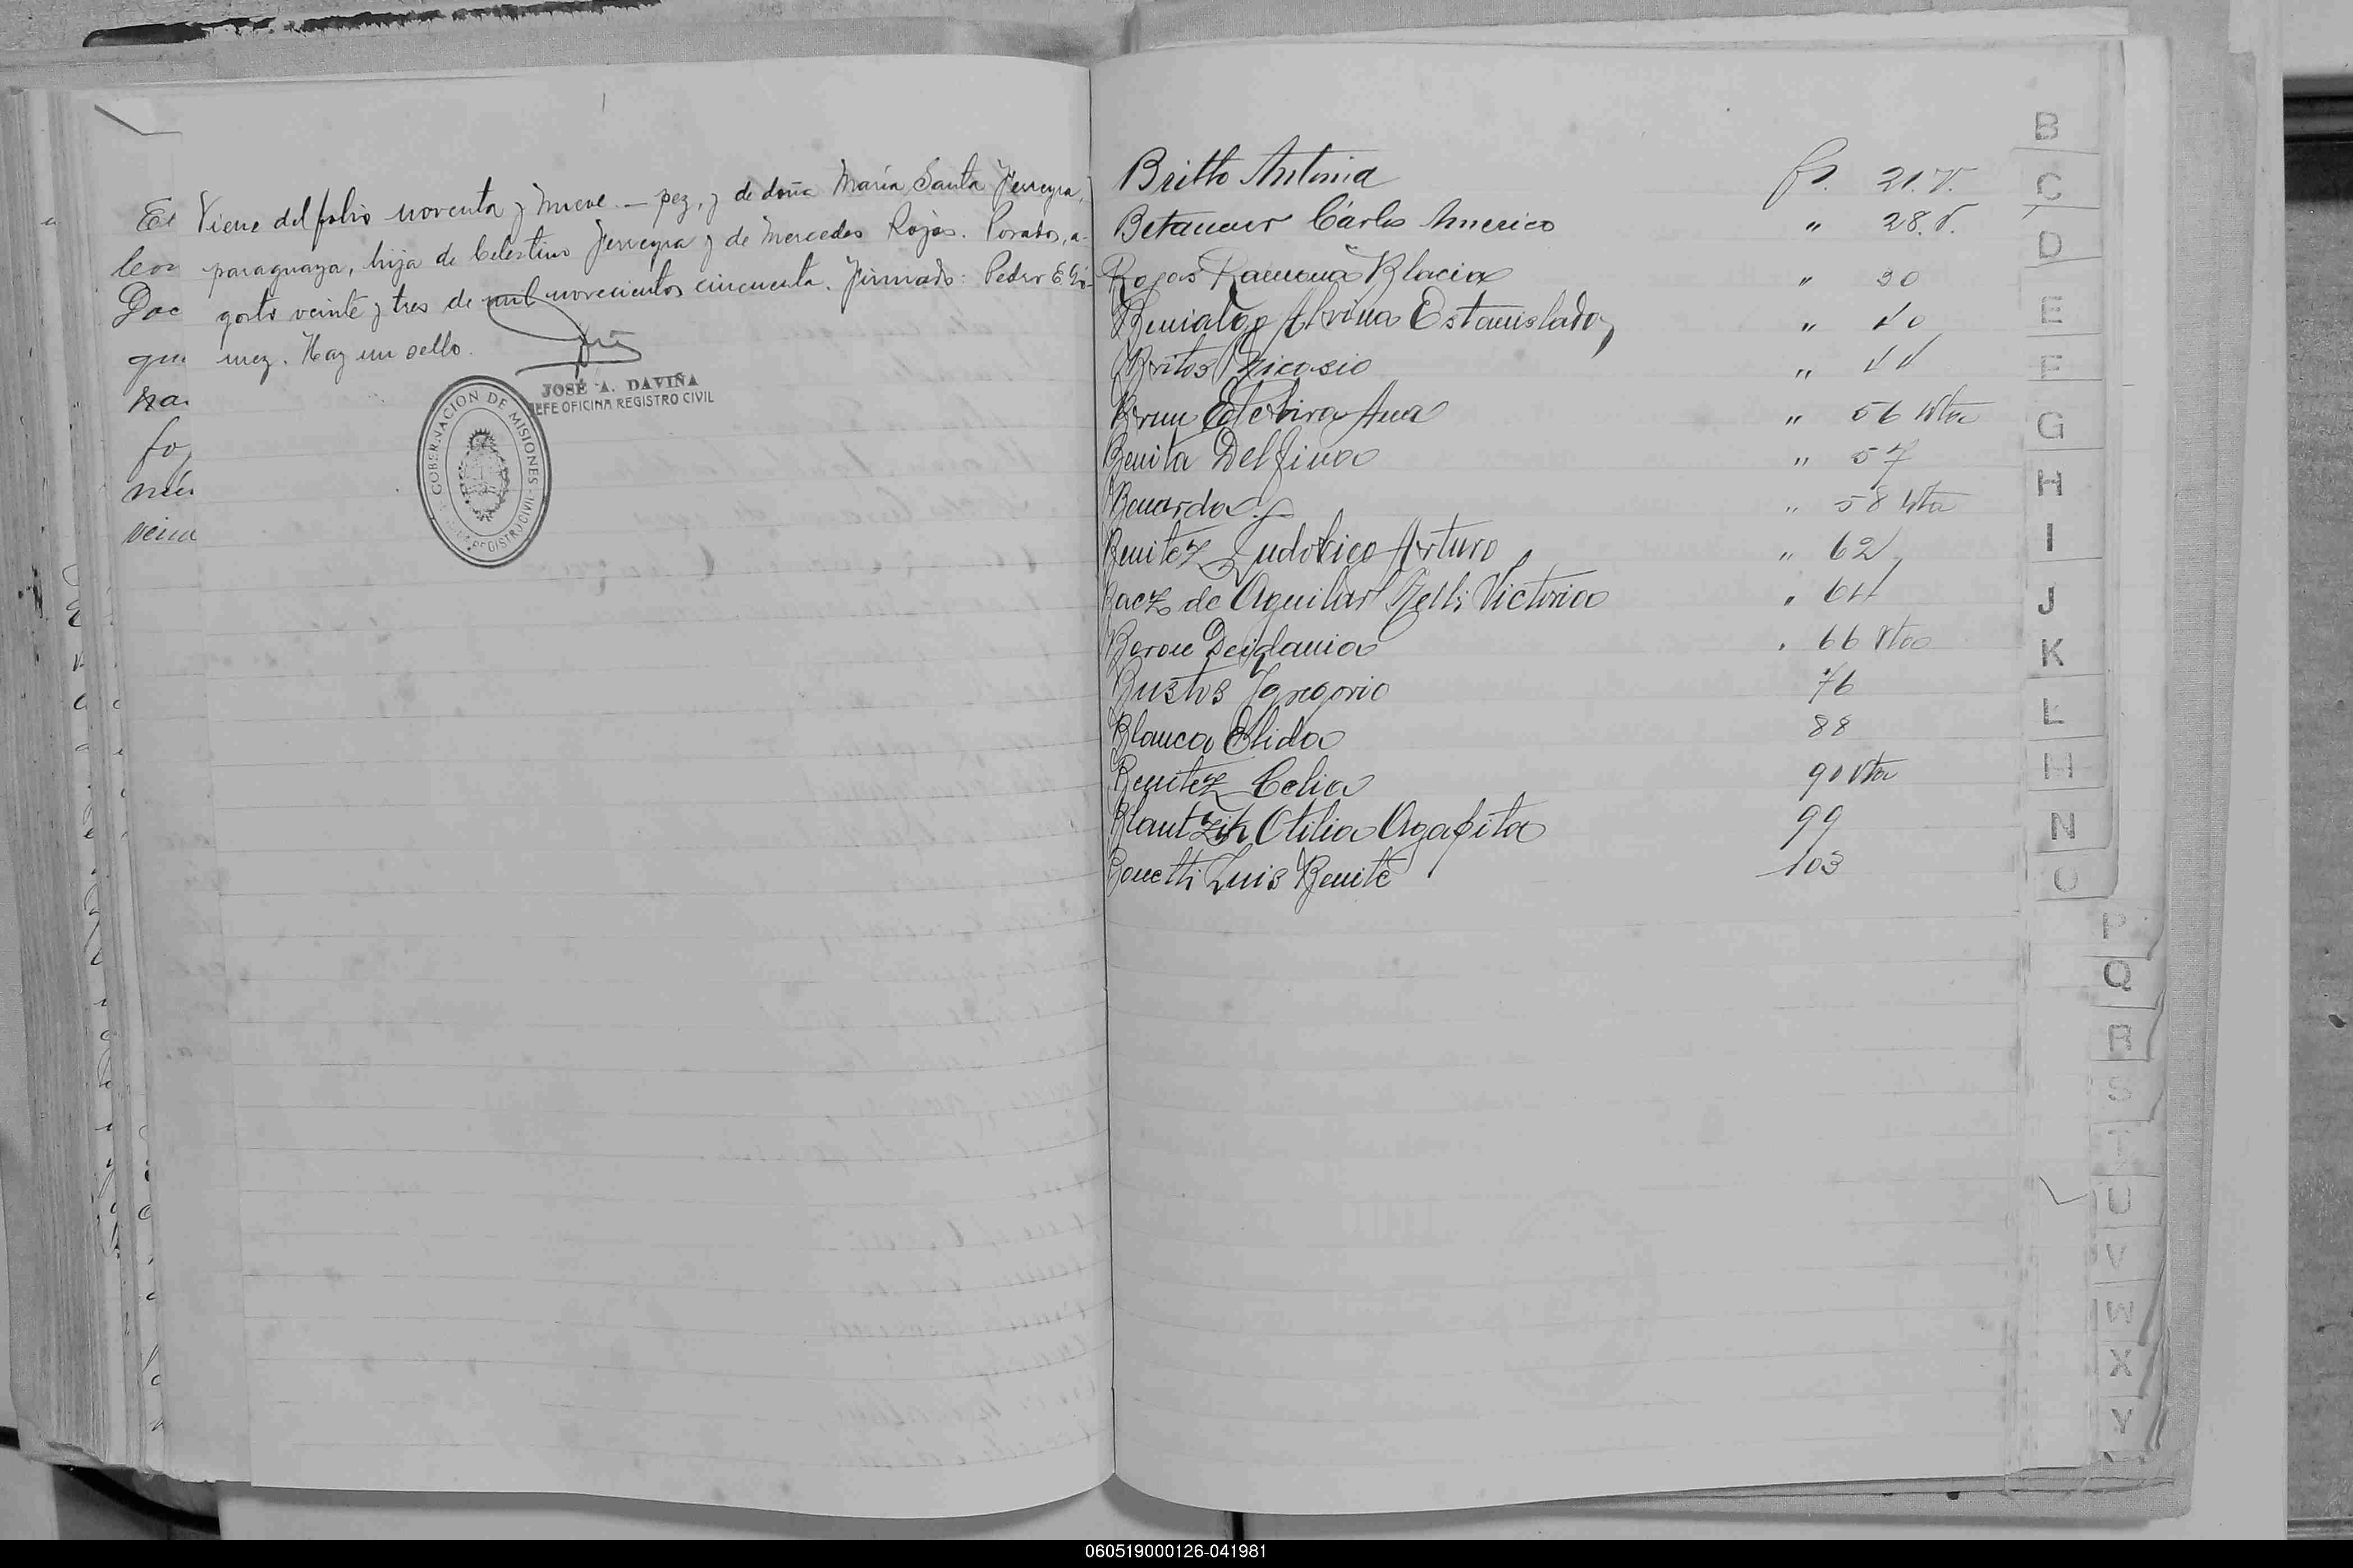 Viene del folio noventa y nueve. — pez, y de doña María Santa Ferreyra,
paraguaya, hija de Celestino Ferreyra y de Mercedes Rojas. Posadas, a-
gosto veinte y tres de mil novecientos cincuenta. Firmado: Pedro E. Gi-
nez. Hay un sello.
JOSÉ A. DAVIÑA
JEFE OFICINA REGISTRO CIVIL
GOBERNACION DE MISIONES
REGISTRO CIVIL
El
Doc
que
fo
nú
vein
Britto Antonia fs. 21.V.
Betancur Cárlos Americo " 28.V.
Rojas Ramona Blacia " 30
Estanislada " 40
Britos Nicasio " 44
Brun Ana " 56 Vta
Benita Delfina " 57
" 58 Vta
Benitez Ludovico Arturo " 62
Baez de Aguilar Nelli Victorica " 64
66 Vta
Bustos Gregorio 76
Blanca Elida 88
Benitez Celia 90 Vta
Otilia Agapita 99
Bonetti Luis Benite 103
B
C
D
E
F
G
H
I
J
K
L
M
N
O
P
Q
R
S
T
U
V
W
X
Y
060519000126-041981